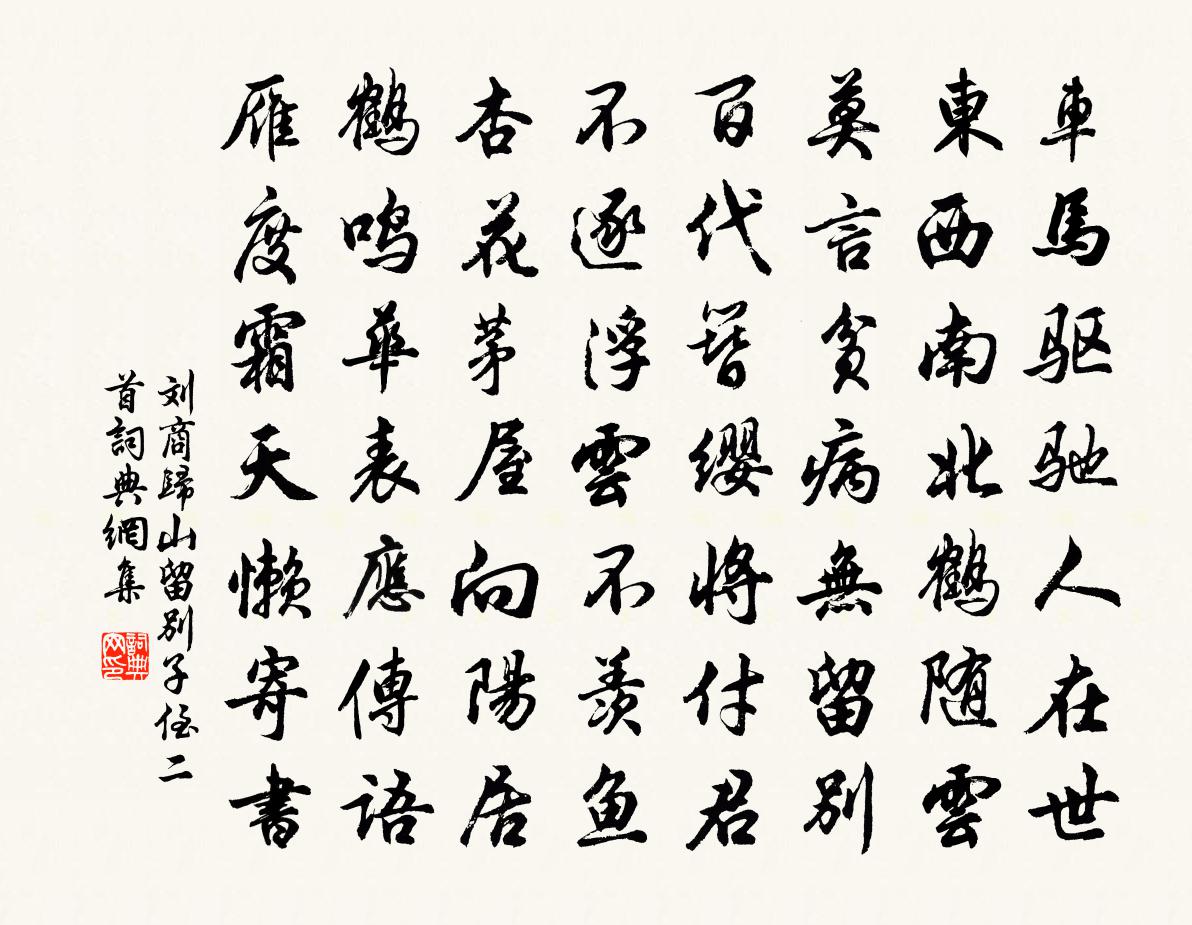 車馬驱馳人在世
東西南北鶴随雲
莫言貧病無留別
百代簪纓將付君
不逐浮雲不羨鱼
杏花茅屋向陽居
鶴鸣華表應傳語
雁度霜天懒寄書
刘商歸山留別子侄二
首詞典網集
詞典网印